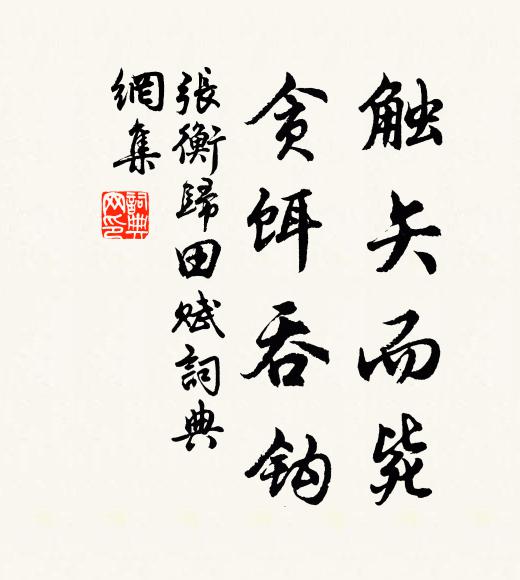 触矢而毙
贪饵吞钩
張衡歸田赋詞典
網集
詞典网印